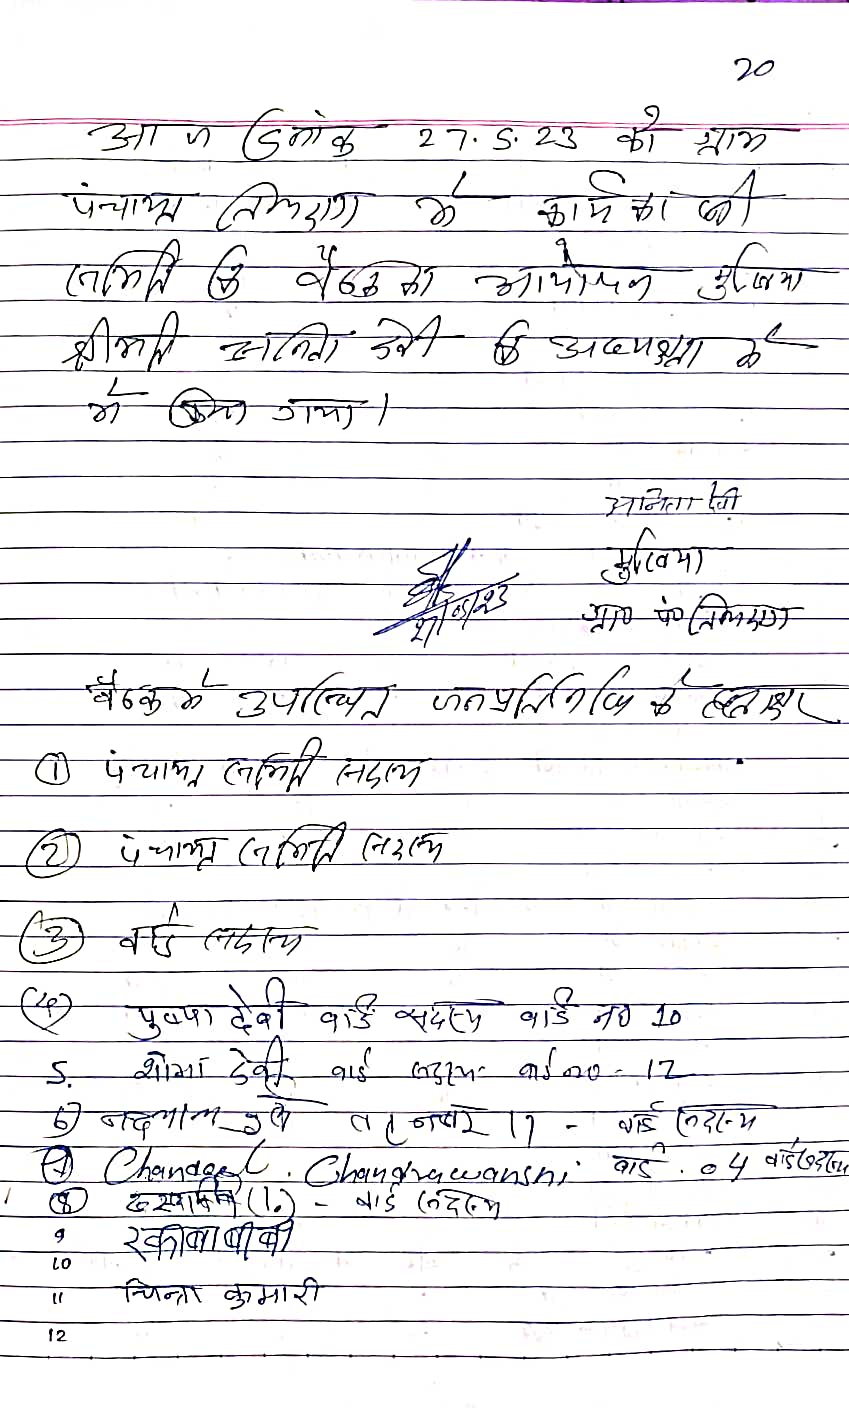 20
आज दिनांक 27.5.23 को ग्राम
पंचायत के कार्यकारणी
समिति कि बैठक का आयोजन मुखिया
श्रीमति अनिता देवी कि अध्यक्षता मे
मे किया गया।
अनिता देवी
मुखिया
ग्राम पं०
27/05/23
बैठक मे उपस्थित जनप्रतिनिधि के हस्ताक्षर
① पंचायत समिति सदस्य
② पंचायत समिति सदस्य
③ वार्ड सदस्य
④ पुष्पा देवी वार्ड सदस्य वार्ड न० 10
5. शोभा देवी वार्ड सदस्य वार्ड न० - 12
6) 11 - वार्ड सदस्य
⑦ Chandrawanshi वार्ड . 04 वार्ड सदस्य
⑧ - वार्ड सदस्य
9 रकीबा बीबी
10
11 चिन्ता कुमारी
12